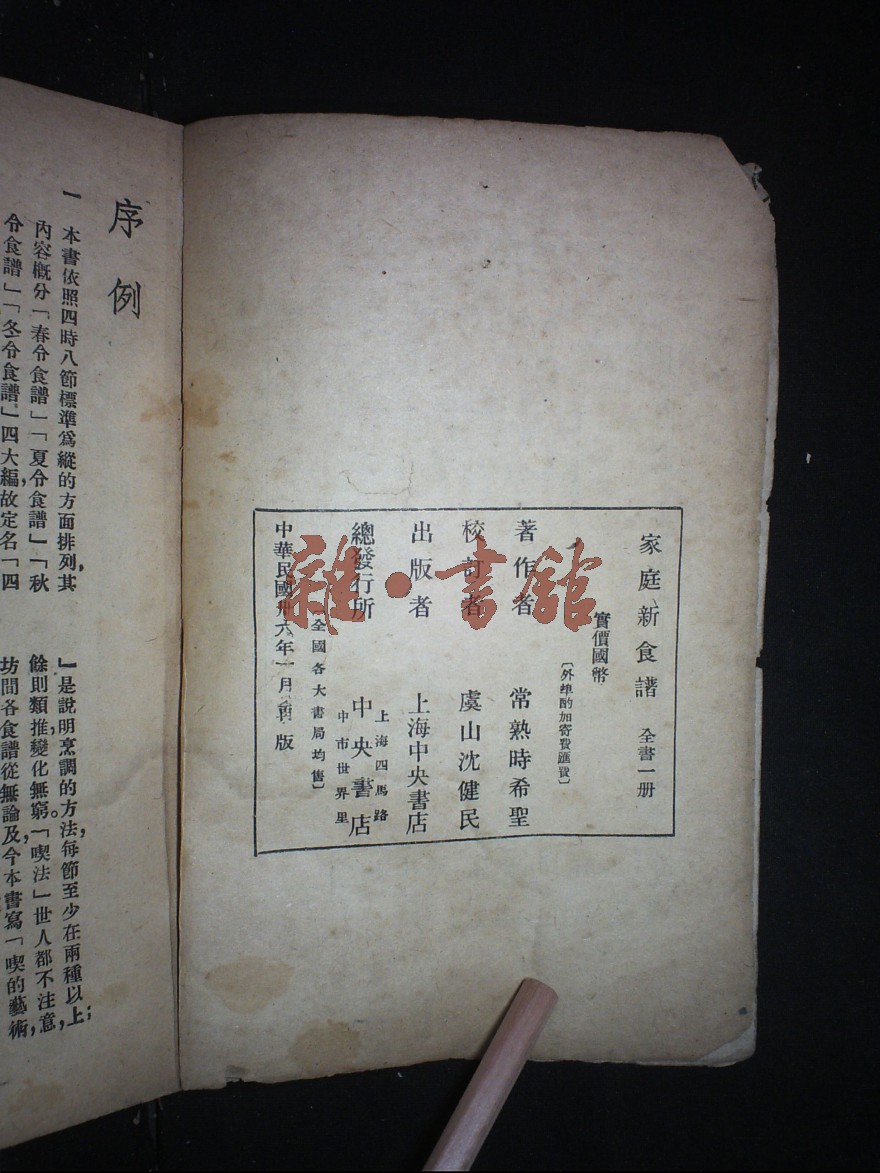 家庭新食譜 全書一册
實價國幣
〔外埠酌加寄費匯費〕
著作者 常熟時希聖
校訂者 虞山沈健民
出版者 上海中央書店
上海四馬路
總發行所 中央書店
中市世界里
〔全國各大書局均售〕
中華民國卅六年一月 版
雜·書館
序例
一 本書依照四時八節標準爲縱的方面排列,其
內容概分「春令食譜」「夏令食譜」「秋
令食譜」「冬令食譜」四大編,故定名「四
』是說明烹調的方法,每節至少在兩種以上;
餘則類推,變化無窮。「喫法」世人都不注意,
坊間各食譜從無論及,今本書寫「喫的藝術